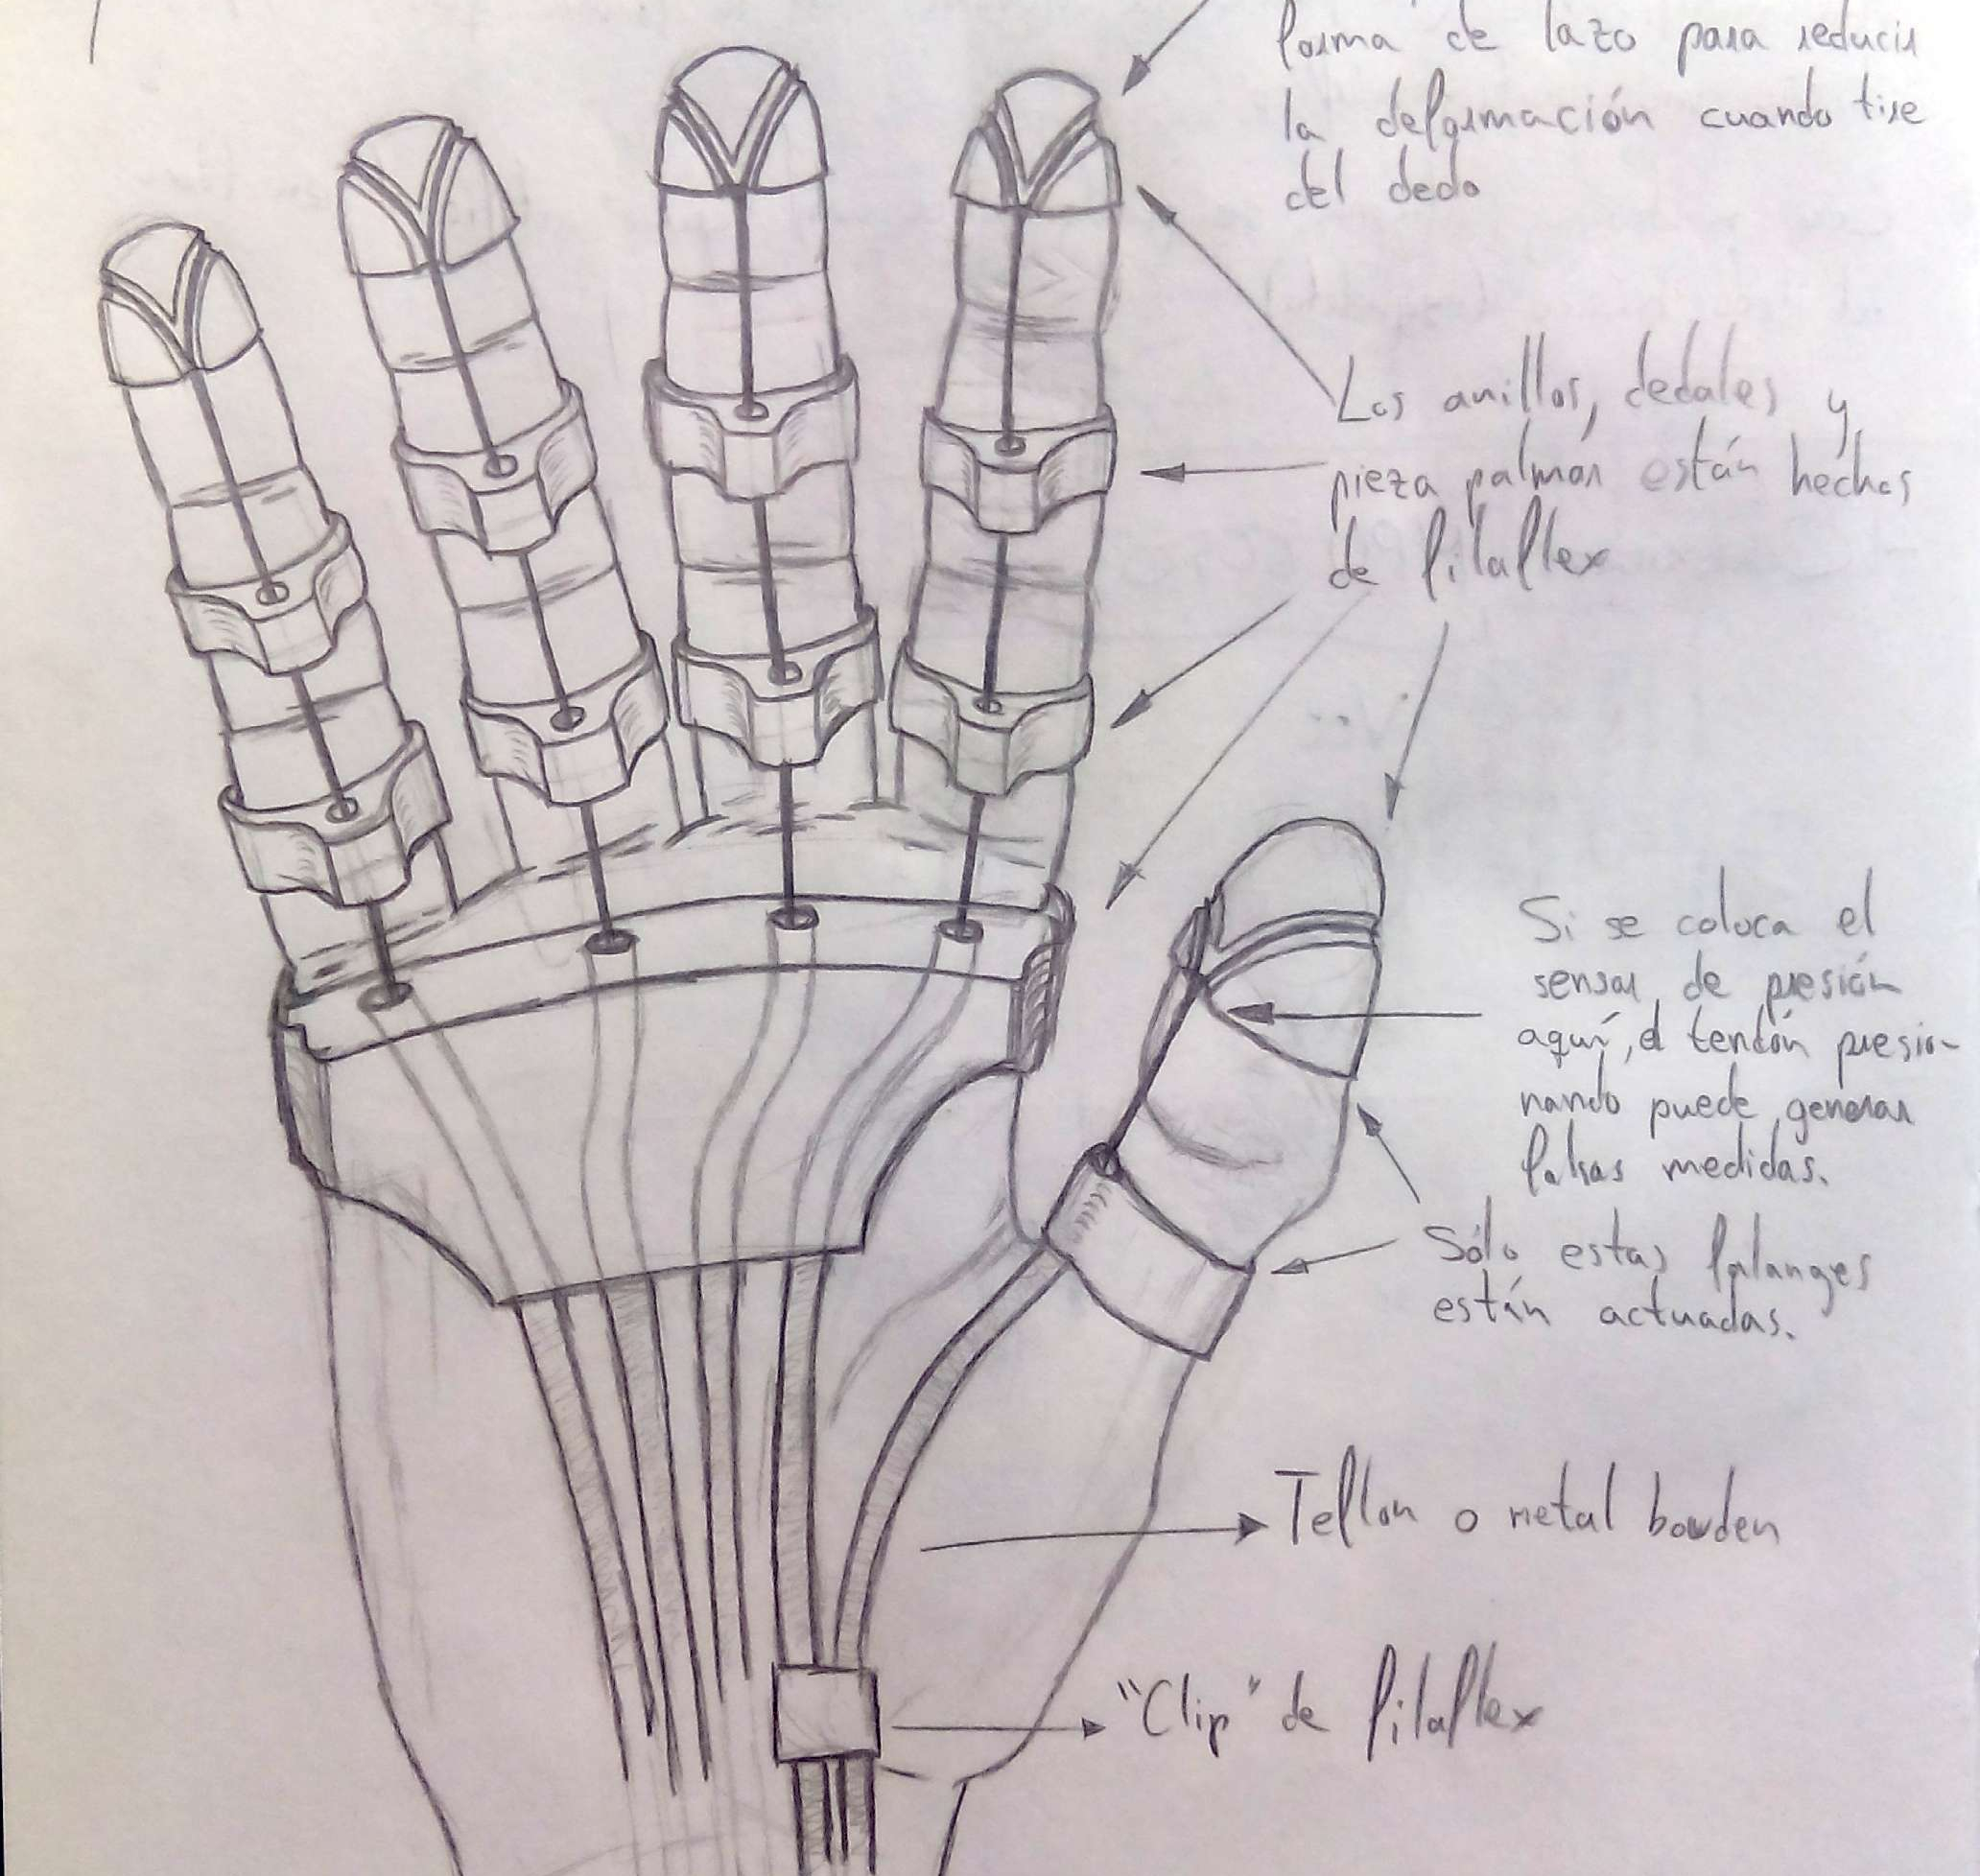 forma de lazo para reducir
la deformación cuando tire
del dedo
Los anillos, dedales y
pieza palmar están hechos
de filaflex
Si se coloca el
sensor de presión
aquí, el tendón presio-
nando puede generar
falsas medidas.
Sólo estas falanges
están actuadas.
Teflon o metal bowden
"Clip" de filaflex